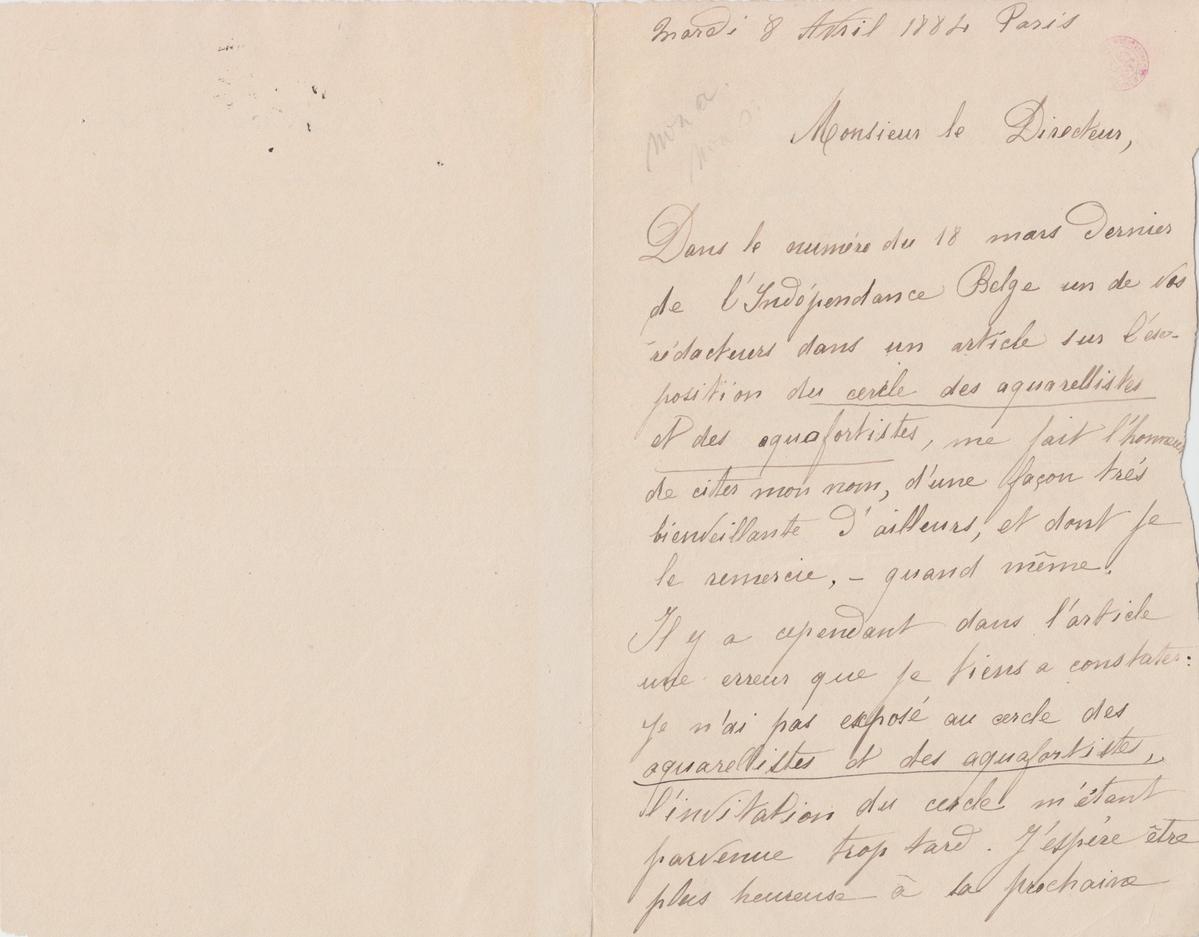 Mardi 8 Avril 1884 Paris
Monsieur le Directeur,
Dans le numéro du 18 mars dernier
de l'Indépendance Belge un de vos
rédacteurs dans un article sur l'ex-
position du cercle des aquarellistes
et des aquafortistes, me fait l'honneur
de citer mon nom, d'une façon trés
bienveillante d'ailleurs, et dont je
le remercie, – quand même.
Il y a cependant dans l'article
une erreur que je tiens a constater:
je n'ai pas exposé au cercle des
aquarellistes et des aquafortistes,
l'invitation du cercle m'étant
parvenue trop tard. J'espére être
plus heureuse à la prochaine